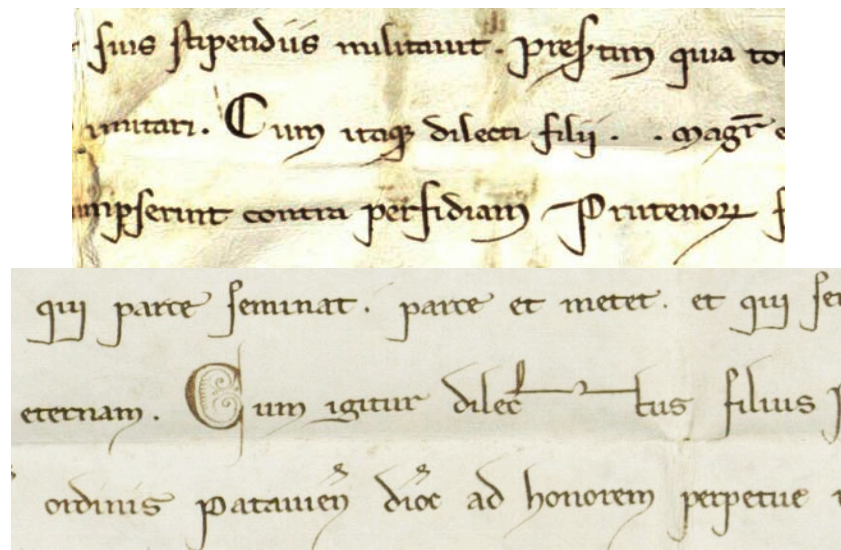 suis stipendiis militavit. presertim quia
mutari. Cum itaq dilecti filii. . magr
contra perfidiam Prutenoꝝ
qui parce seminat. parce et metet. et qui
eternam. Cum igitur dilectus filius
ordinis patavien dioc ad honorem perpetue